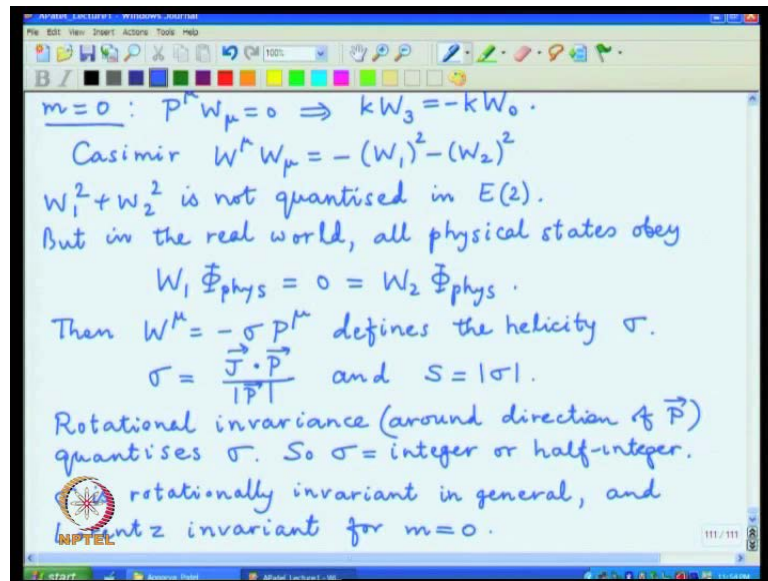 APatel_Lecture1 - Windows Journal
File Edit View Insert Actions Tools Help
100%
B I
m=0 : P^μ W_μ = 0 ⇒ kW_3 = -kW_0.
Casimir W^μ W_μ = -(W_1)^2 - (W_2)^2
W_1^2 + W_2^2 is not quantised in E(2).
But in the real world, all physical states obey
W_1 Φ_phys = 0 = W_2 Φ_phys.
Then W^μ = -σ P^μ defines the helicity σ.
σ = \vec{J}·\vec{P} / |\vec{P}| and S = |σ|.
Rotational invariance (around direction of \vec{P})
quantises σ. So σ = integer or half-integer.
rotationally invariant in general, and
invariant for m=0.
NPTEL
111 / 111
start
APatel_Lecture1 - Wi...
11:54 PM